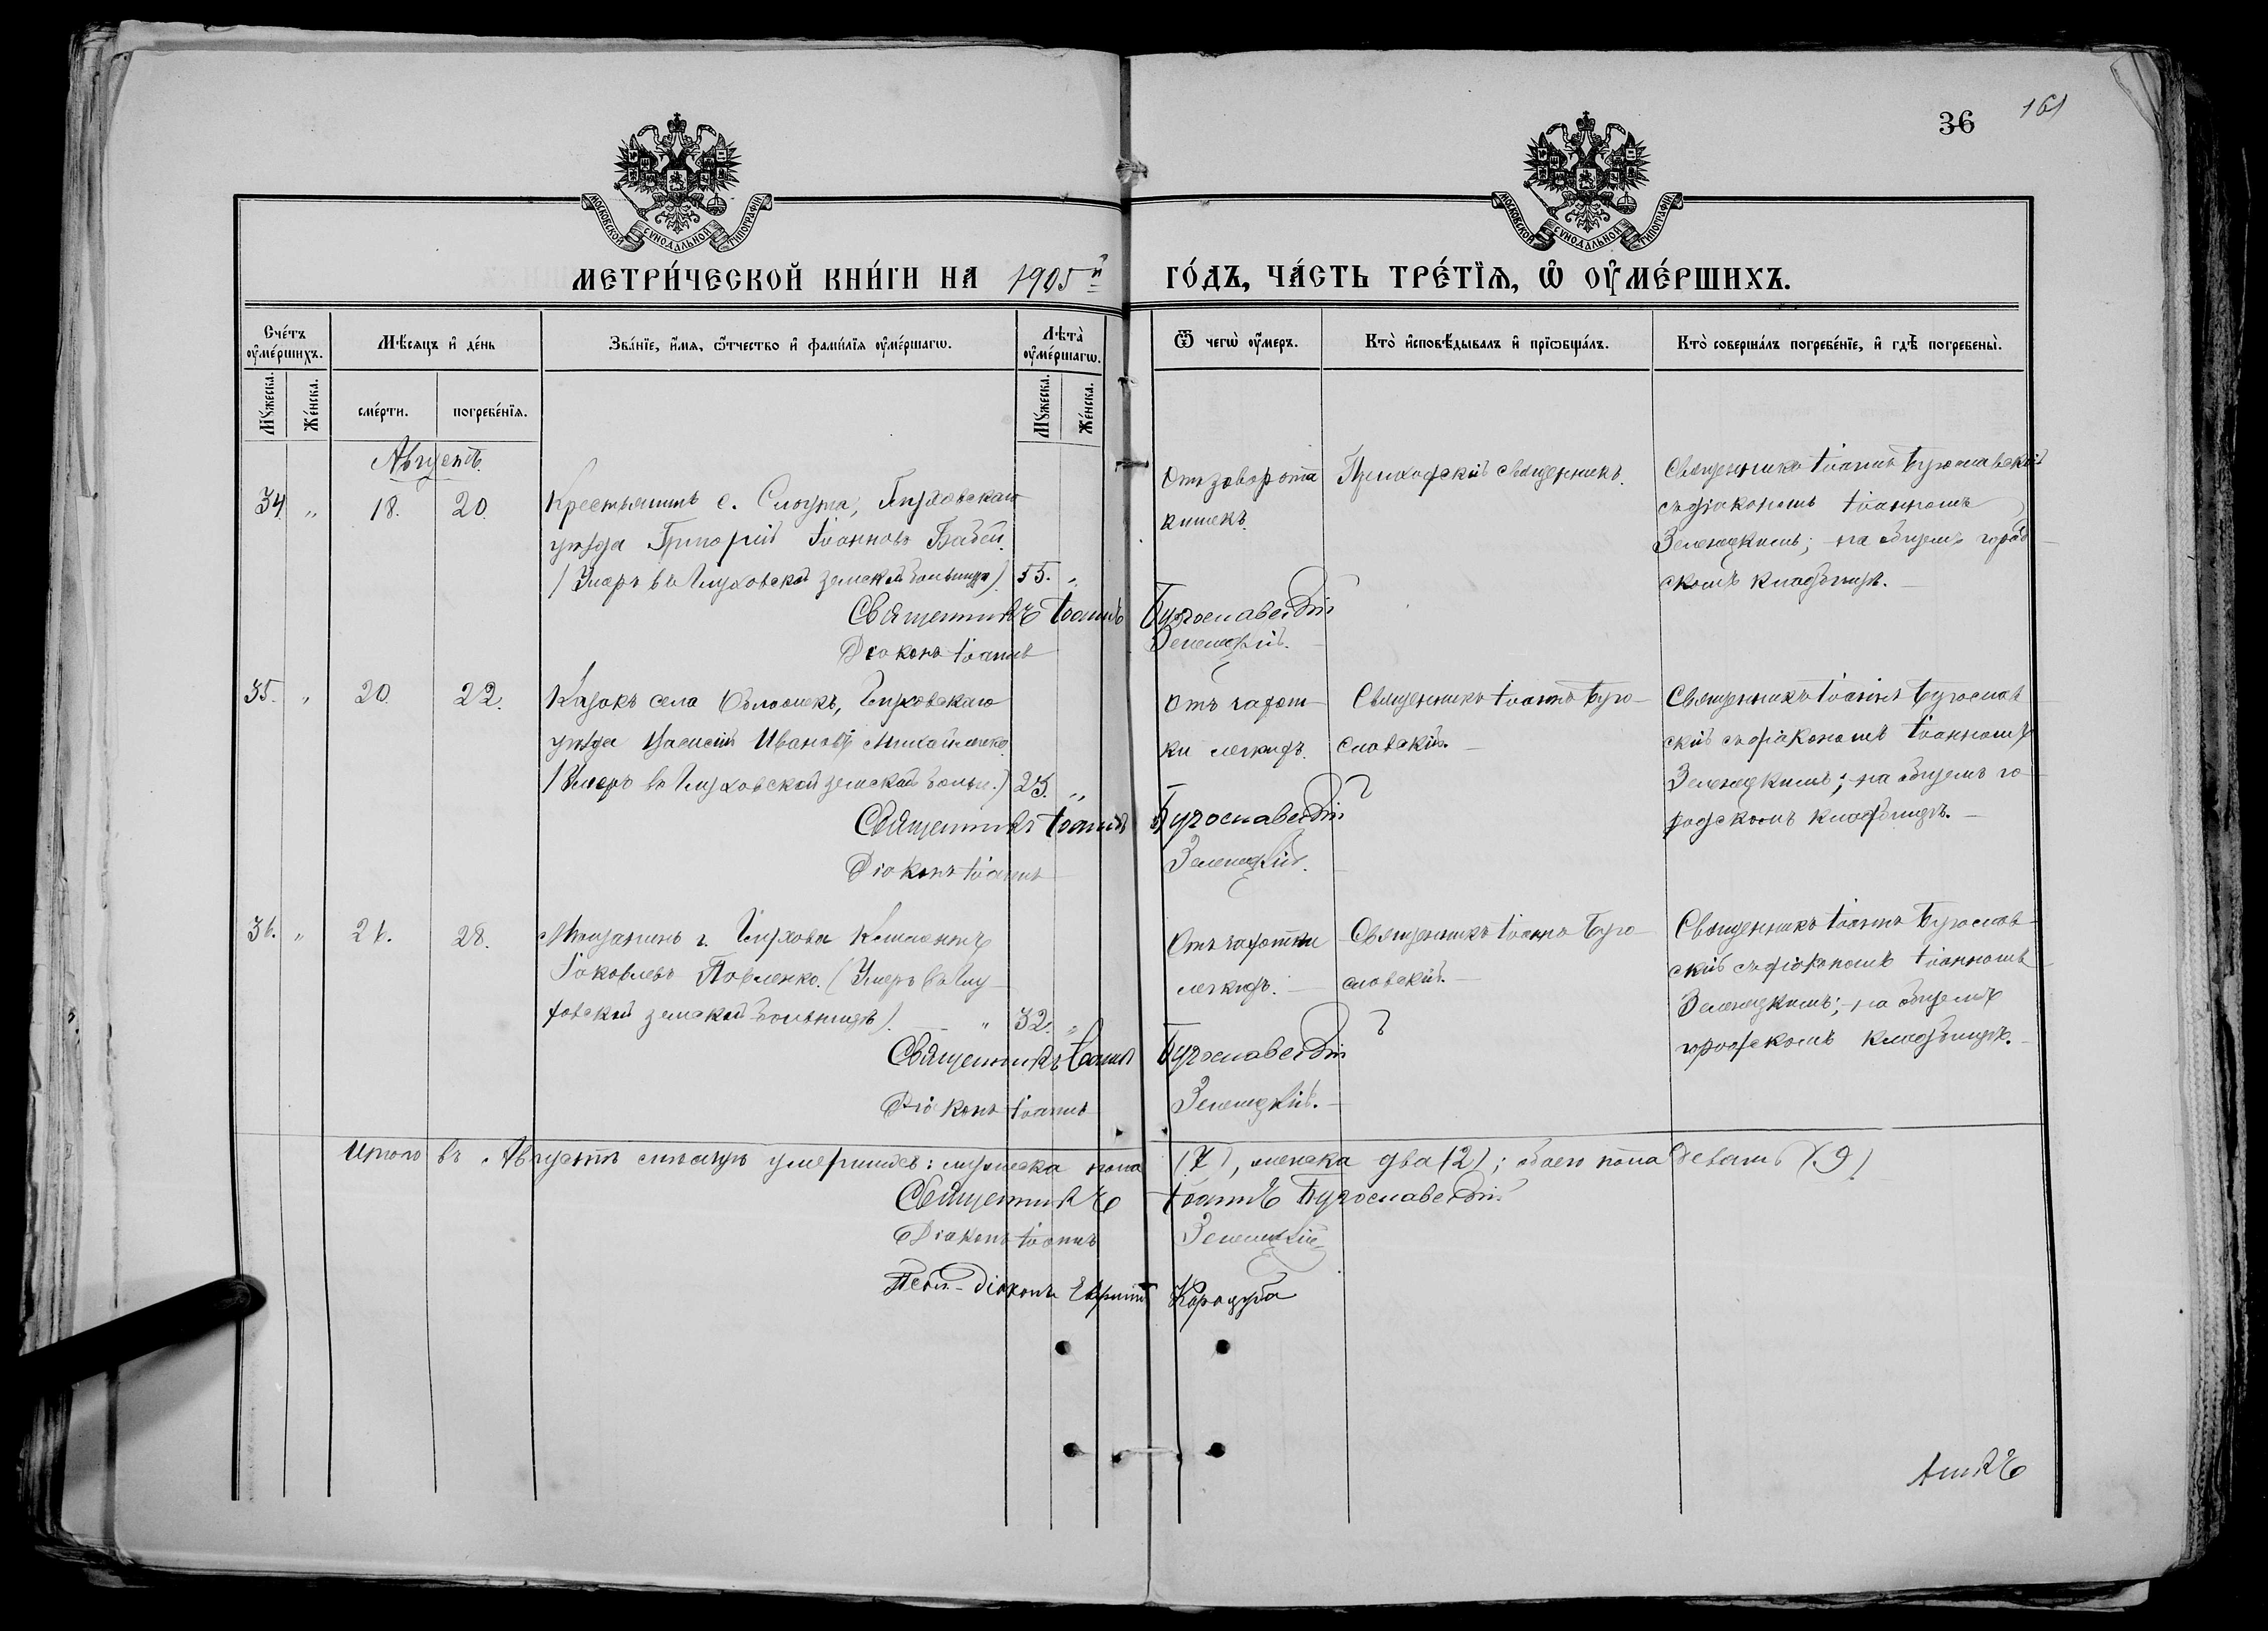 161
36
МОСКОВСКОЙ СѴНОДАЛЬНОЙ ТИПОГРАФІИ
МОСКОВСКОЙ СѴНОДАЛЬНОЙ ТИПОГРАФІИ
МЕТРИ́ЧЕСКОЙ КНИ́ГИ НА 1905й ГО́ДЪ, ЧА́СТЬ ТРЕ́ТІѦ, Ѡ ОУМЕ́РШИХЪ.
Сче́тъ оуме́ршихъ.
Мѣ́сяцъ и де́нь
Зва́нїе, и́мя, ѻ҆́тчество и фами́лїя оуме́ршагѡ.
Лѣта̀ оуме́ршагѡ.
Ѿ чегѡ̀ оу́меръ.
Кто̀ исповѣ́дывалъ и прїѡбща́лъ.
Кто̀ соверша́лъ погребе́нїе, и гдѣ̀ погребены̀.
Мꙋ́жеска.
Же́нска.
сме́рти.
погребе́нїя.
Мꙋ́жеска.
Же́нска.
Августъ.
34. „ 18. 20.
Крестьянинъ с. Слоута, Глуховскаго
уѣзда Григорій Іоанновъ Бабій.
(Умеръ въ Глуховской земской больницѣ) 55. „
Отъ заворота
кишекъ.
Приходскій священникъ.
Священникъ Іоаннъ Бугославскій
съ діакономъ Іоанномъ
Зеленецкимъ; на общемъ город-
скомъ кладбищѣ.
Священникъ Іоаннъ Бугославскій
Діаконъ Іоаннъ Зеленецкій.
35. „ 20. 22.
Казакъ села Обложекъ, Глуховскаго
уѣзда Василій Ивановъ Михайленко.
(Умеръ въ Глуховской земской больн.) 25. „
Отъ чахот-
ки легкихъ.
Священникъ Іоаннъ Буго-
славскій.
Священникъ Іоаннъ Бугослав-
скій съ діакономъ Іоанномъ
Зеленецкимъ; на общемъ го-
родскомъ кладбищѣ.
Священникъ Іоаннъ Бугославскій
Діаконъ Іоаннъ Зеленецкій.
36. „ 28.
Мѣщанинъ г. Глухова Климентъ
Іаковлевъ Павленко. (Умеръ въ Глу-
ховской земской больницѣ). „ 32. „
Отъ чахотки
легкихъ.
Священникъ Іоаннъ Буго-
славскій.
Священникъ Іоаннъ Бугослав-
скій съ діакономъ Іоанномъ
Зеленецкимъ; на общемъ
городскомъ кладбищѣ.
Священникъ Іоаннъ Бугославскій
Діаконъ Іоаннъ Зеленецкій.
Итого въ Августѣ мѣсяцѣ умершихъ: мужеска пола (7), женска два (2); обоего пола девять (9).
Священникъ Іоаннъ Бугославскій
Діаконъ Іоаннъ Зеленецкій
Псал.-діаконъ